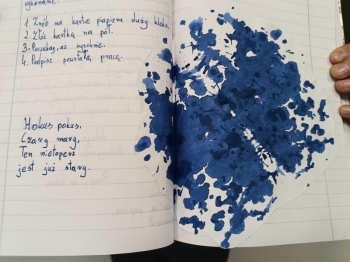 wykonanie:
1. Zrób na kartce papieru duży kleks.
2. Złóż kartkę na pół.
3. Poczekaj, aż wyschnie.
4. Podpisz powstałą pracę.
Hokus pokus,
Czary mary,
Ten nietoperz
jest już stary.